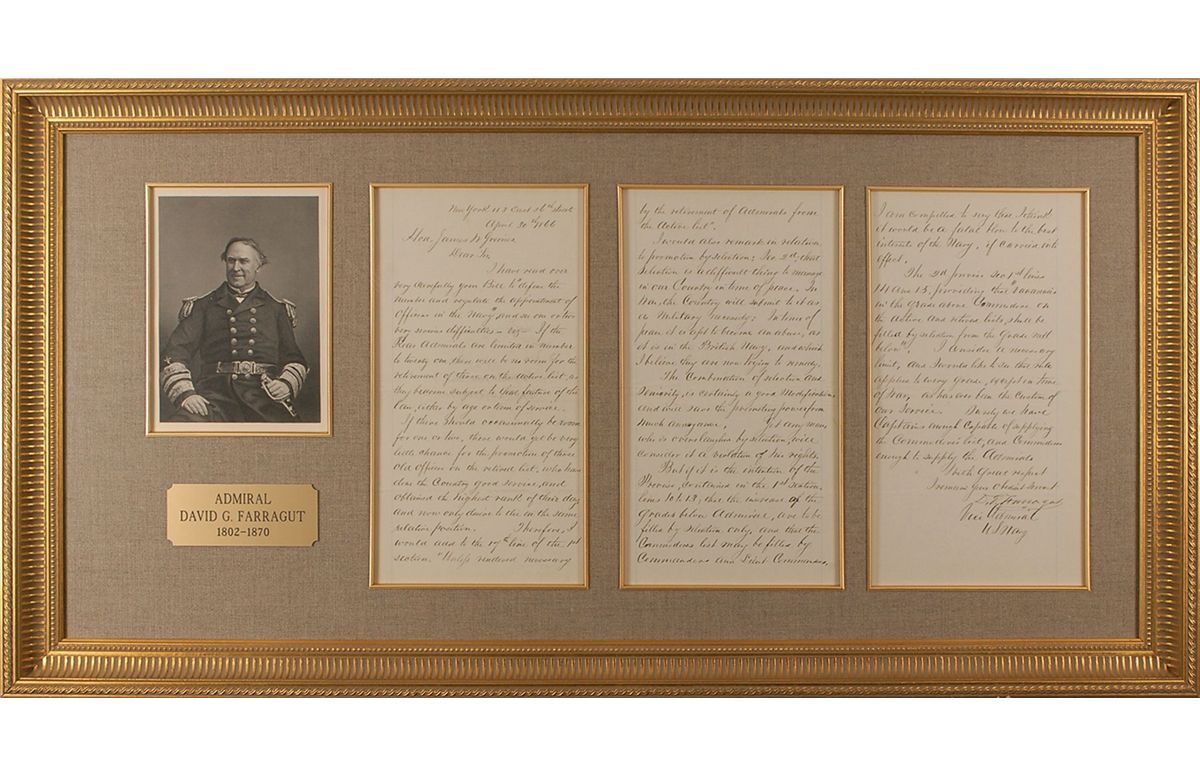 ADMIRAL
DAVID G. FARRAGUT
1802–1870
New York 113 East 36th Street
April 20th 1866
Hon. James W Grimes
Dear Sir
I have read over
very carefully your Bill "to define the
number and regulate the appointment of
Officers in the Navy" and see one or two
very serious difficulties – viz If the
Rear Admirals are limited in number
to twenty one, there will be no room for the
retirement of those on the active list, as
they become subject to that feature of the
law, either by age or term of service.
If there should occasionally be room
for one or two, there would yet be very
little chance for the promotion of those
old officers on the retired list, who have
done the Country good service, and
obtained the highest rank of their day
and now only desire to die in the same
relative position. Therefore, I
would add to the 17th line of the 1st
section, "Unless rendered necessary
by the retirement of Admirals from
the Active list".
I would also remark in relation
to promotion by selection; Sec 2d that
Selection is a difficult thing to manage
in our Country in time of peace. In
War, the Country will submit to it as
a Military necessity; In time of
peace it is apt to become an abuse, as
it is in the British Navy, and which
I believe they are now trying to remedy.
The Combination of selection and
Seniority, is certainly a good modification
and will save the promoting power from
much annoyance. Yet any man
who is overslaughed by selection, will
consider it a violation of his rights.
But if it is the intention of the
Proviso, contained in the 1st section,
lines 10 & 13; that the increase of the
grades below Admiral, are to be
filled by selection only, and that the
Commodores list may be filled by
Commanders and Lieut Commanders,
I am compelled to say that I think
it would be a fatal blow to the best
interest of the Navy, if carried into
effect.
The 2d proviso Sec 1st lines
14 and 15, providing that "vacancies
in the grade above Commodore on
the active and retired lists, shall be
filled by selection from the Grade next
below". I consider a necessary
limit, and I would like to see this rule
applied to every grade, except in time
of War, as has ever been the Custom of
our Service. Surely we have
Captains enough capable of supplying
the Commodores list, and Commodores
enough to supply the Admirals
With Great respect
I remain Your Obedient Servant
D. G. Farragut
Vice Admiral
U S Navy